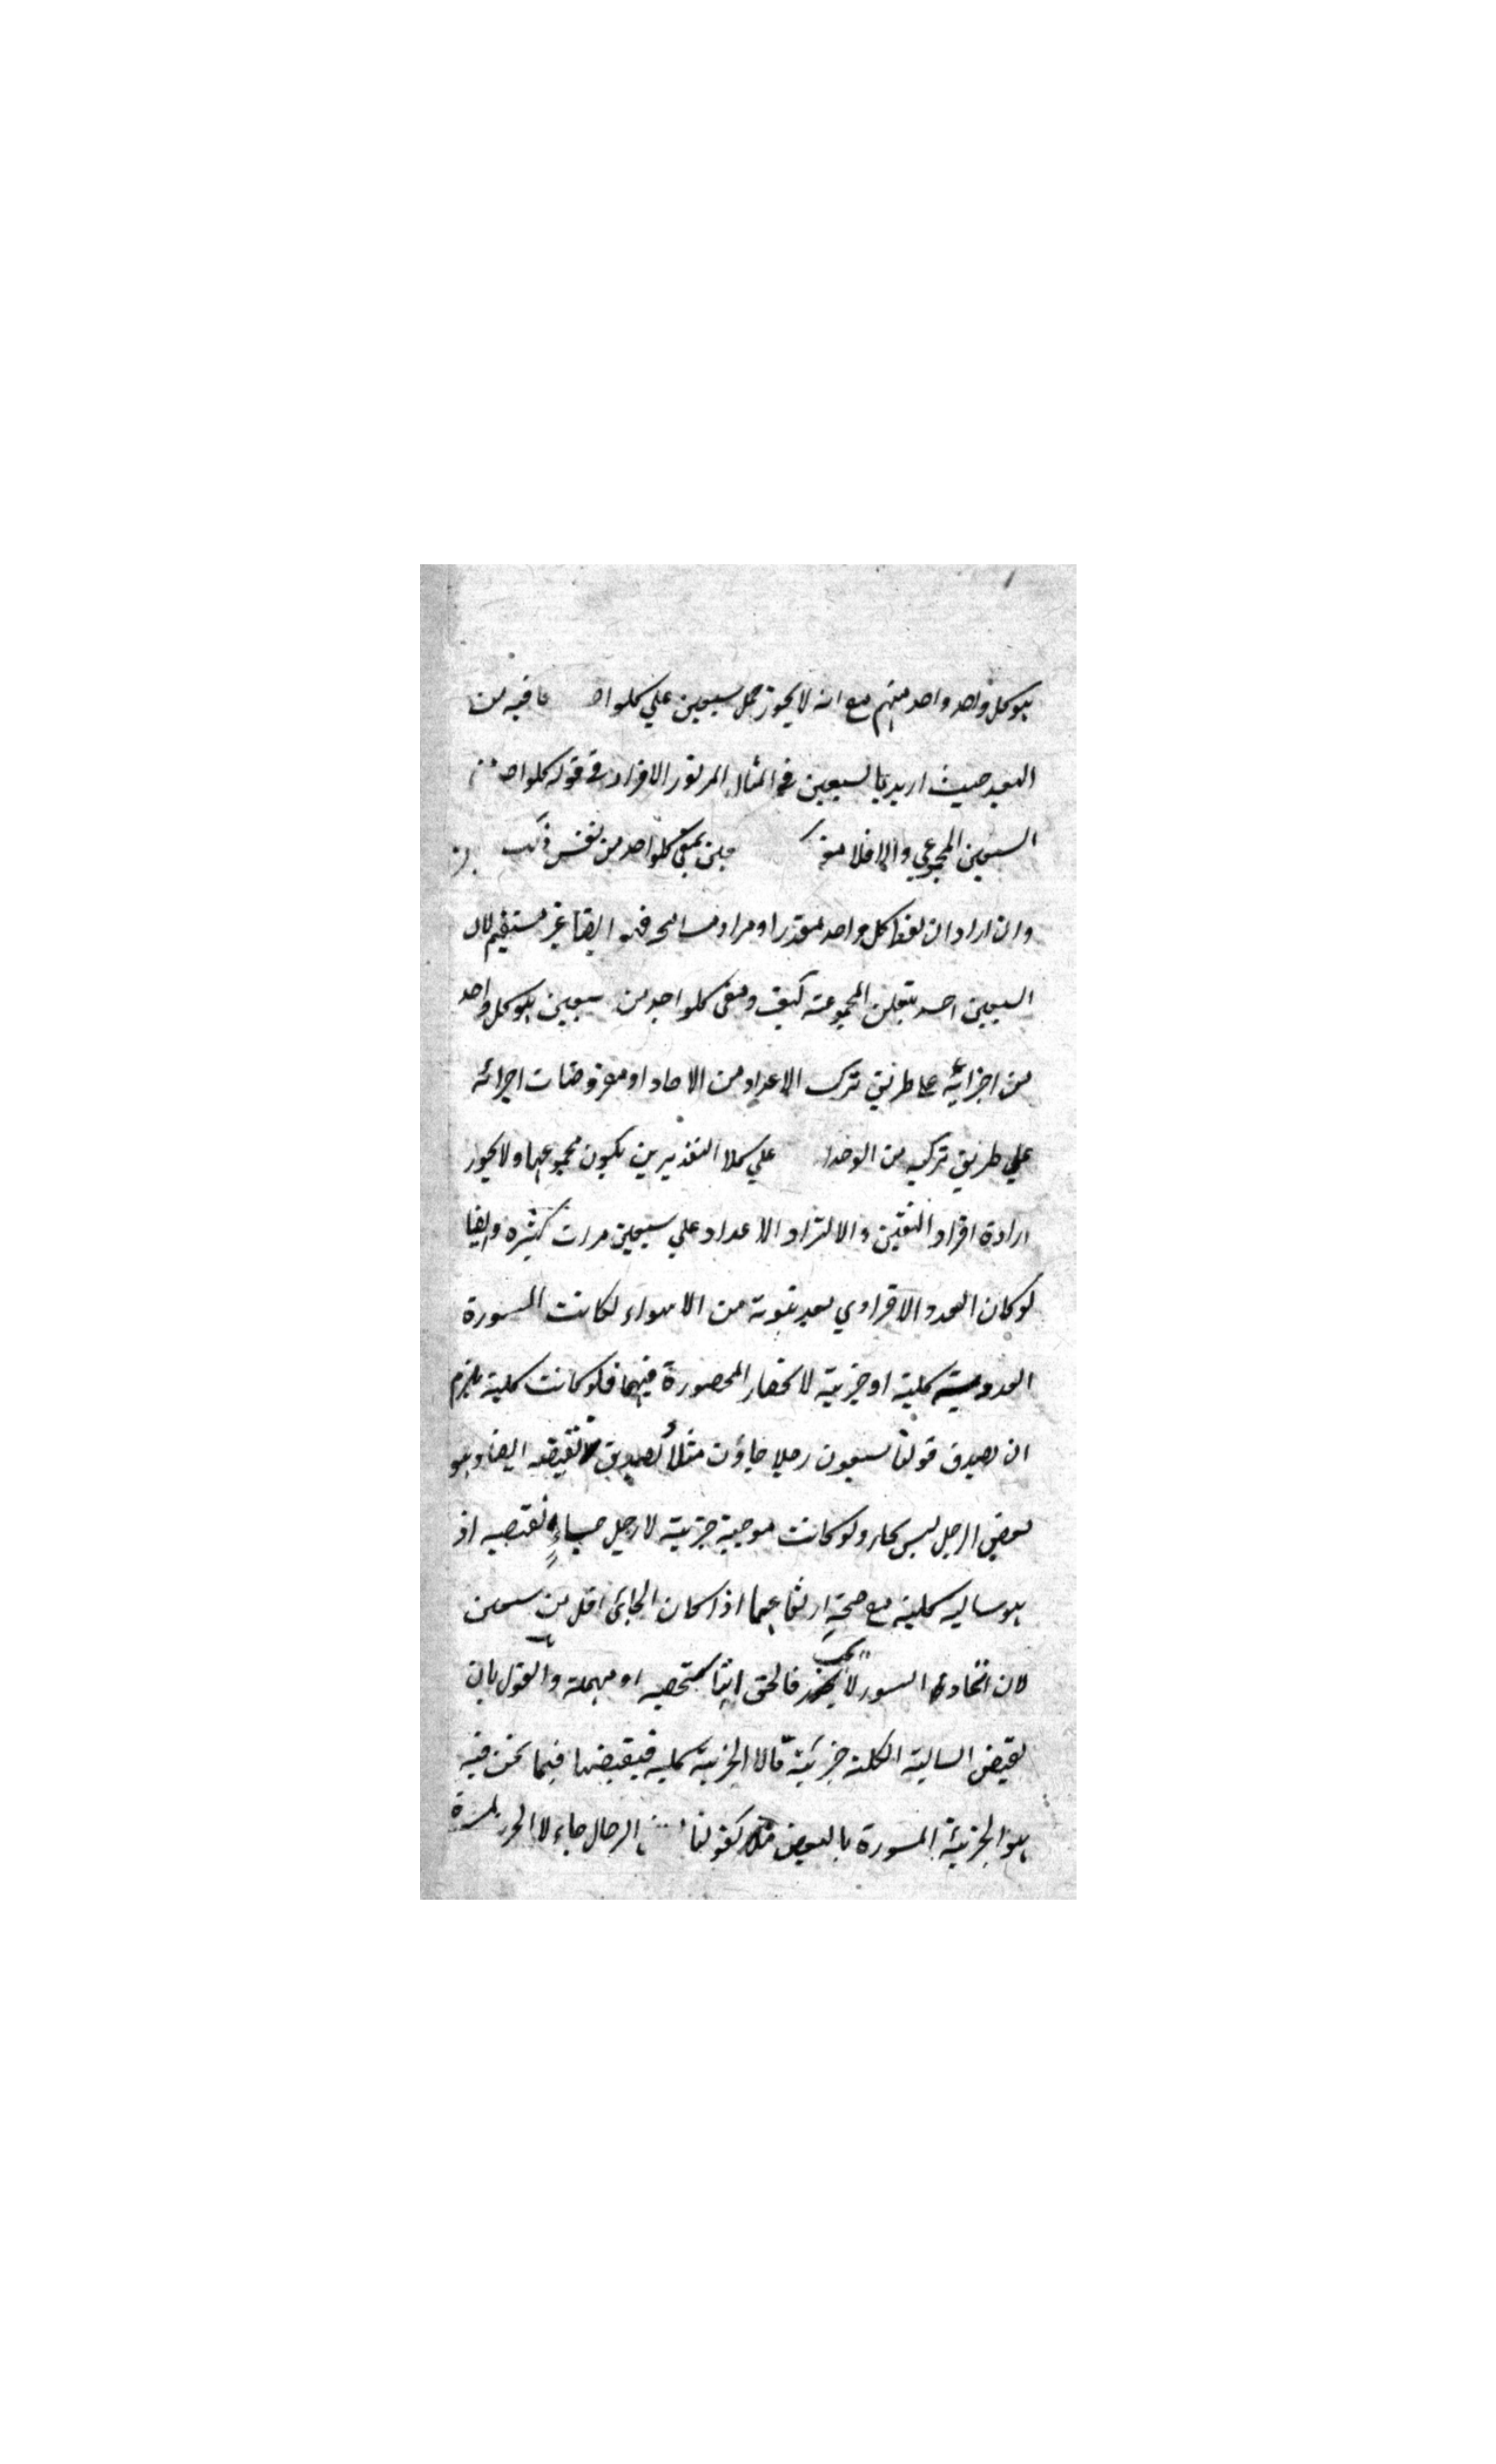 هو كل واحد واحد منهم مع انه لا يجوز حمل سبعين علي كلواحد ما فيه من
البعد حيث اريد بالسبعين في المثال المزبور الافراد في قوله كلواحد
السبعين المجموعي والا فلا معنى كلواحد من نفس ذلك
وان اراد ان لفظ كل واحد مقدر او مراد ايضا غير مستقيم لان
السبعين المجموعة كيف ومعنى كلواحد من سبعين هو كل واحد
من اجزائه علي طريق تركب الاعداد من الاحاد او معروضات اجزائه
علي طريق تركبه من الوحدات علي كلا التقديرين يكون مجموعها ولا يجوز
ارادة افراد والا لزاد الاعداد علي سبعين مرات كثيرة وايضا
لو كان العدد الافرادي من الاسوار لكانت المسورة
العددية كلية او جزئية لانحصار المحصورة فيهما فلو كانت كلية يلزم
ان يصدق قولنا سبعون رجلا جاؤن مثلا يصدق نقيضه ايضا وهو
بعض الرجل ليس بجاء ولو كانت موجبة جزئية لا رجل جاء نقيضه اذ
هو سالبه كلية مع صحة ارتفاعهما اذا كان الجائي اقل من سبعين
لان اتحاد السور لا يجب فالحق انها شخصيه او مهملة والقول بان
نقيض السالبة الكلية جزئية الجزئية كليه فنقيضها فيما نحن فيه
هو الجزئية المسورة بالبعض مثلا كقولنا الرجال جاء لا الجزئية